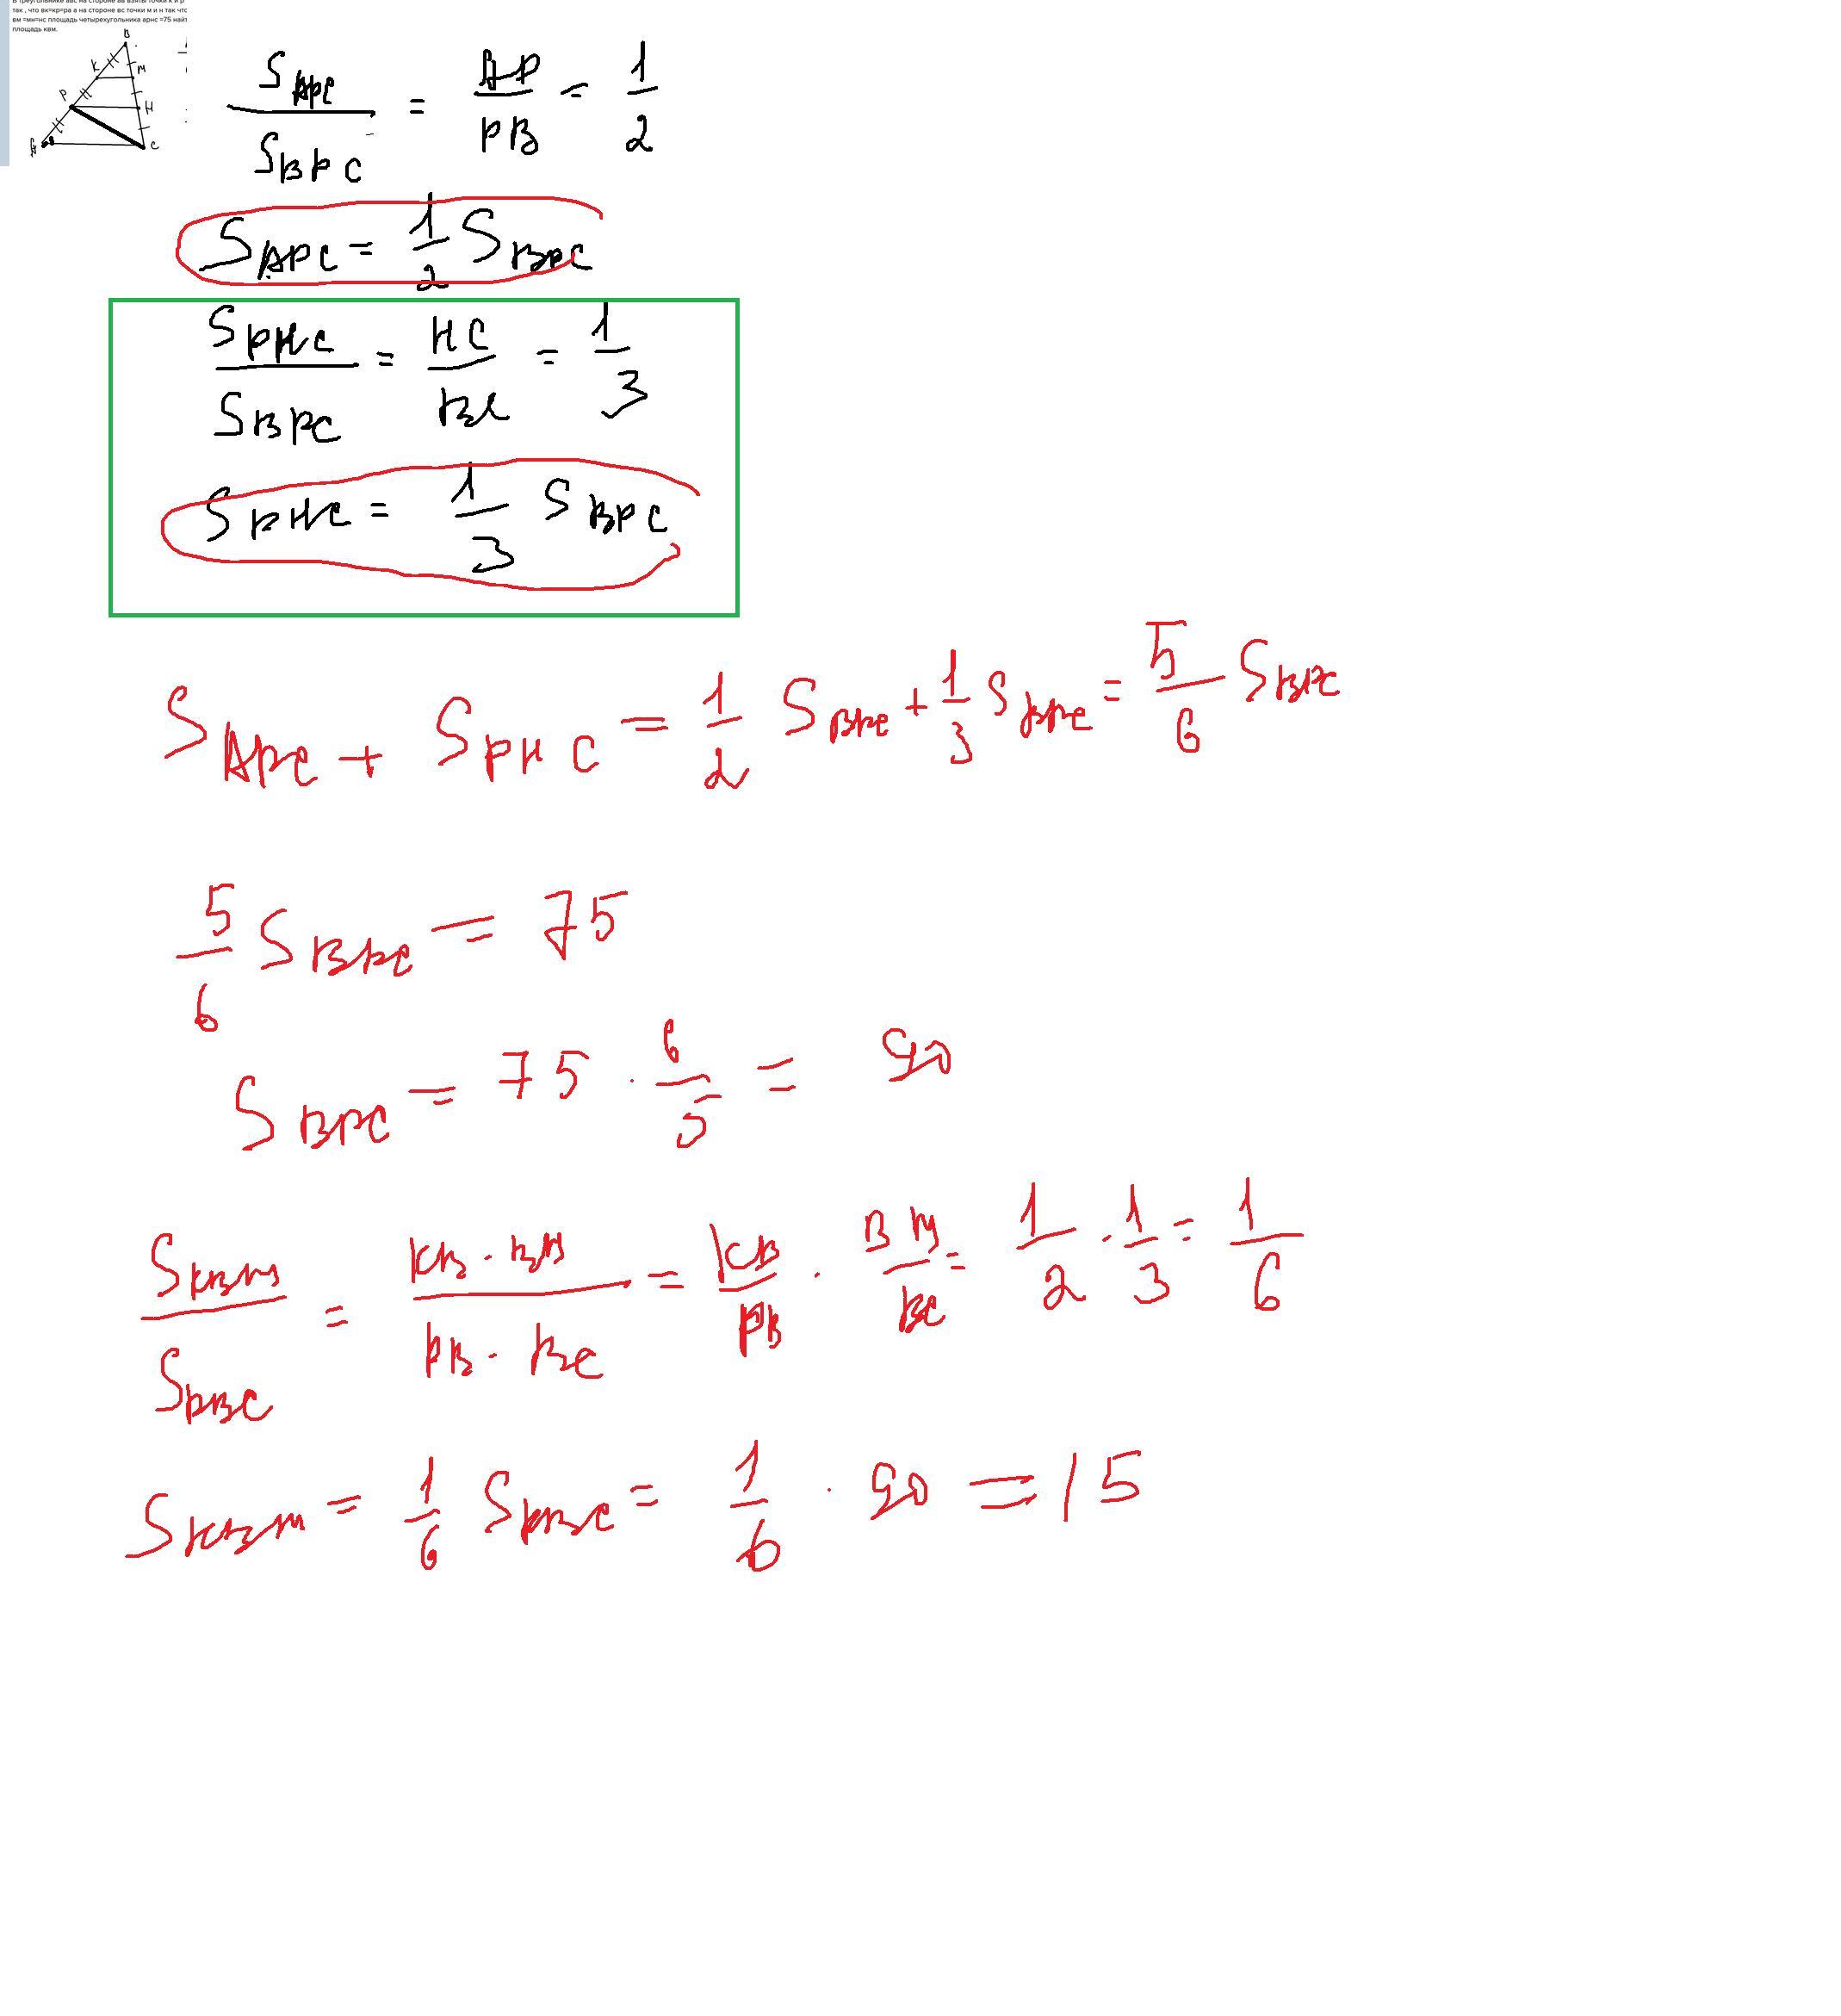 В треугольнике авс на стороне ав взяты точки к и р
так , что вк=кр=ра а на стороне вс точки м и н так что
вм =мн=нс площадь четырехугольника арнс =75 найт
площадь квм.
B
K M
P H
A C
S_APC / S_BPC = AP / PB = 1/2
S_APC = 1/2 S_BPC
S_PHC / S_BPC = HC / BC = 1/3
S_PHC = 1/3 S_BPC
S_APC + S_PHC = 1/2 S_BPC + 1/3 S_BPC = 5/6 S_BPC
5/6 S_BPC = 75
S_BPC = 75 · 6/5 = 90
S_KBM / S_PBC = KB · BM / PB · BC = KB / PB · BM / BC = 1/2 · 1/3 = 1/6
S_KBM = 1/6 S_PBC = 1/6 · 90 = 15